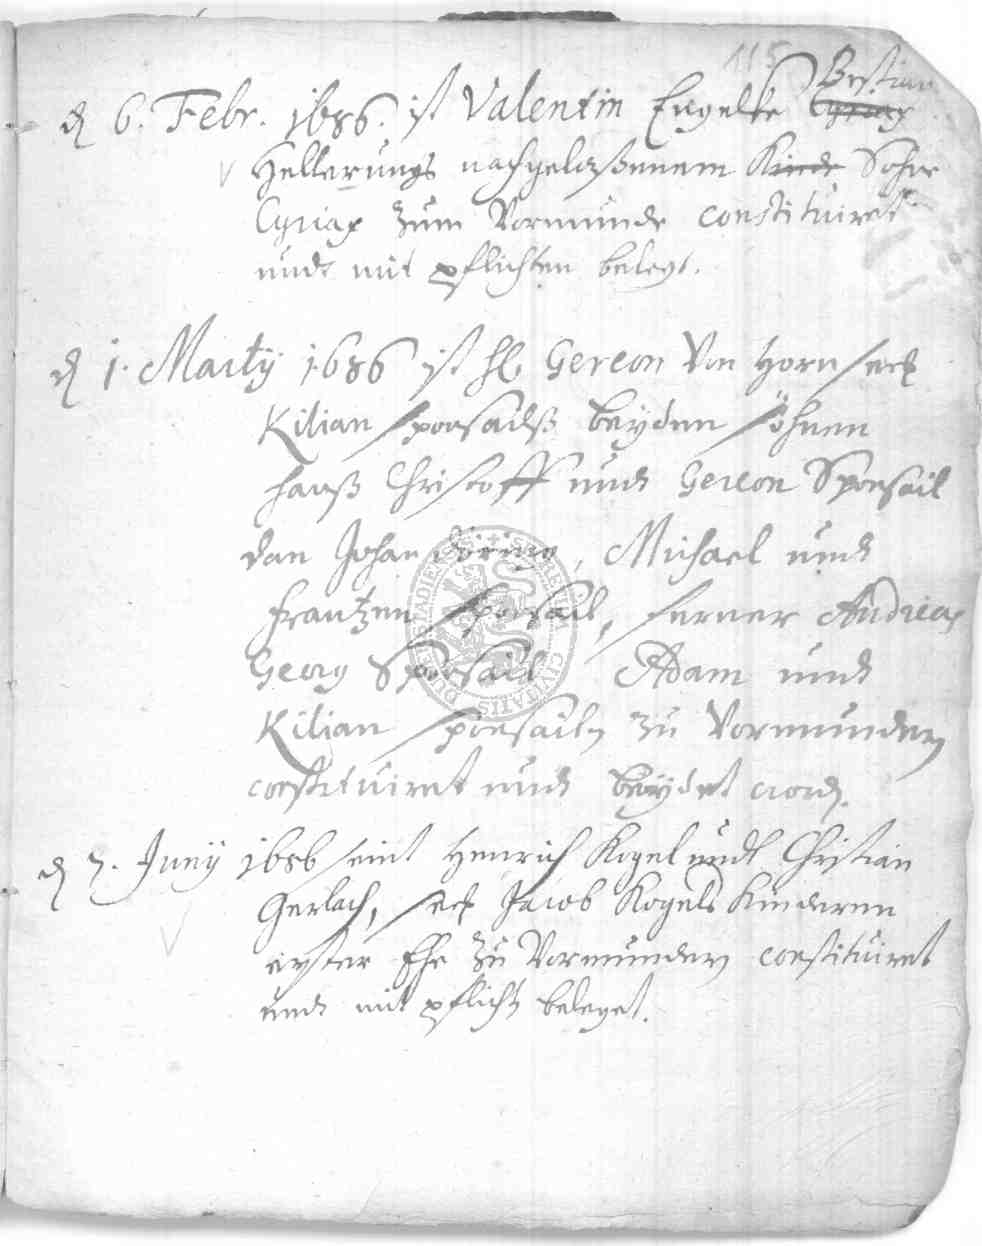 115
d 6. Febr. 1686. ist Valentin Engelke Cyriax Bestian
Hellerungs nachgelaßenem Kinde Sohne
Cyriax zum Vormunde constituiret
undt mit pflichten belegt.
d 1. Martÿ 1686 ist H. Gereon Von Horn
Kilian Sponsails beÿden söhnen
Hanß Christoff undt Gereon Sponsail
dan Johan Döring, Michael undt
Frantzen Sponsail, ferner Andreas
Georg Sponsail Adam undt
Kilian Sponsailn zu Vormunden
constituiret undt beÿdet
d 7. Junÿ 1686 seint Henrich Kogel undt Christian
Gerlach, Jacob Kogels Kinderen
erster Ehe zu Vormunden constituiret
undt mit pflicht beleget.
SECRET CIVITATIS DUDERSTADIENSIS